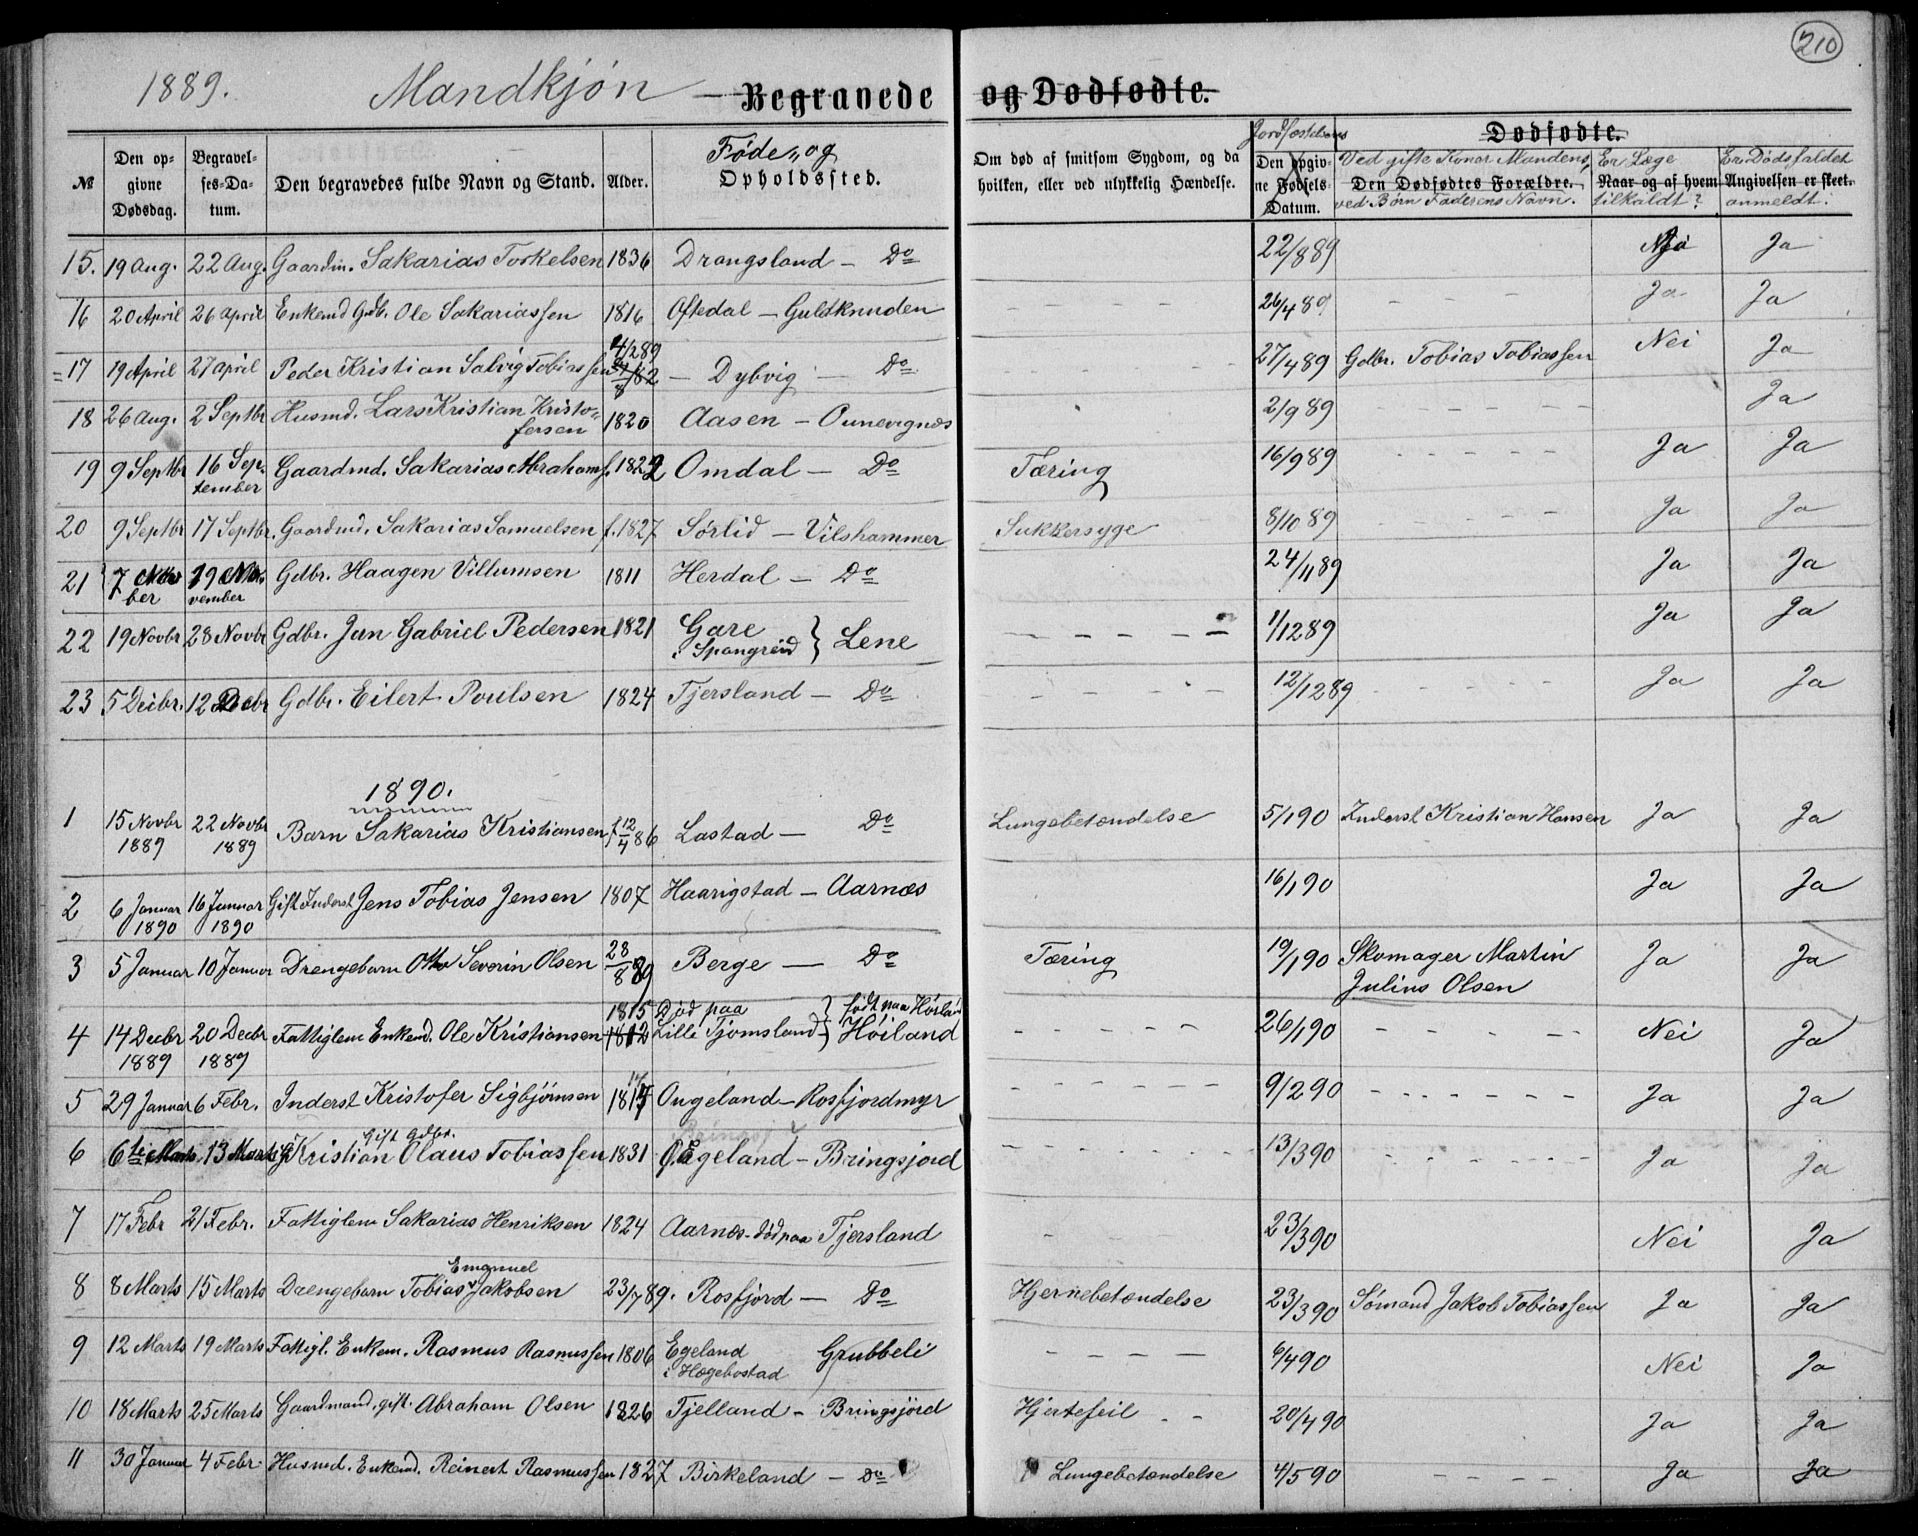 210
1889. Mandkjøn — Begravede og Dødfødte.
№ | Den opgivne Dødsdag. | Begravelses-Datum. | Den begravedes fulde Navn og Stand. | Alder. | Føde- og Opholdssted. | Om død af smitsom Sygdom, og da hvilken, eller ved ulykkelig Hændelse. | Jordfæstelsens Den opgivne Fødsels Datum. | Dødfødte. Den Dødfødtes Forældre. Ved gifte Koner Mandens, ved Børn Faderens Navn. | Naar og af hvem Er Læge tilkaldt? | Angivelsen er skeet. Er Dødsfaldet anmeldt?
15. | 19 Aug. | 22 Aug. | Gaardm. Sakarias Torkelsen | 1836 | Drangsland — Do | 22/8 89 | Ja | Ja
16 | 20 April | 26 April | Enkemd Gdb. Ole Sakariassen | 1816 | Oftedal — Guldknuden | — — — | 26/4 89 | — — — | Ja | Ja
17 | 19 April | 27 April | Peder Kristian Salvig Tobiassen | 4/2 89 | — Dybvig — Do | 27/4 89 | Gdbr. Tobias Tobiassen | Nei | Ja
18 | 26 Aug. | 2 Septbr | Husmd. Lars Kristian Kristofersen | 1820 | Aasen — Ounevignes | 2/9 89 | — — — | Ja
19 | 9 Septbr | 16 September | Gaardmd. Sakarias Abrahams. | 1829 | Omdal — Do | Tæring | 16/9 89 | — — — | Ja | Ja
20 | 9 Septbr | 17 Septbr. | Gaardmd. Sakarias Samuelsen | f. 1827 | Sørlid — Vilshammer | Sukkersyge | 8/10 89 | — — — | Ja | Ja
21 | 7 Novber | 19 November | Gdbr. Haagen Villumsen | 1811 | Herdal — Do | 24/11 89 | Ja | Ja
22 | 19 Novbr | 28 Novbr | Gdbr. Jens Gabriel Pedersen | 1821 | Gare i Spangreid } Lene | — — — | 1/12 89 | Ja | Ja
23 | 5 Decbr. | 12 Decbr | Gdbr. Eilert Poulsen | 1824 | Tjersland — Do | — — — | 12/12 89 | — — — | Ja | Ja
1890.
1 | 15 Novbr 1889 | 22 Novbr 1889 | Barn Sakarias Kristiansen | f 12/4 86 | Lastad — Do | Lungebetændelse | 5/1 90 | Inderst Kristian Hansen | Ja | Ja
2 | 6 Januar 1890 | 16 Januar 1890 | Gift Inderst Jens Tobias Jensen | 1807 | Haarigstad — Aarnæs | 16/1 90 | Ja | Ja
3 | 5 Januar | 10 Januar | Drengebarn Otto Severin Olsen | 28/8 89 | Berge — Do | Tæring | 19/1 90 | Skomager Martin Julius Olsen | Ja | Ja
4 | 14 Decbr 1889 | 20 Decbr 1889 | Fattiglem Enkemd. Ole Kristiansen | 1815 1812 | Død paa Lille Tjomsland } født paa Høiland Høiland | — — — | 26/1 90 | — — — | Nei | Ja
5 | 29 Januar | 6 Febr. | Inderst Kristofer Sigbjørnsen | 1814 | Ougeland — Rosfjordmyr | — — — | 9/2 90 | — — — | Ja | Ja
6 | 6te Marts | 13 Marts | Gift Gdbr. Kristian Olaus Tobiassen | 1831 | Egeland — Bringsjord | — — — | 13/3 90 | — — — | Ja | Ja
7 | 17 Febr | 21 Febr. | Fattiglem Sakarias Henriksen | 1824 | Aarnæs - død paa Tjersland | 23/3 90 | Nei | Ja
8 | 8 Marts | 15 Marts | Drengebarn Tobias Emanuel Jakobsen | 23/7 89. | Rosfjord — Do | Hjernebetændelse | 23/3 90 | Sømand Jakob Tobiassen | Ja | Ja
9 | 12 Marts | 19 Marts | Fattigl. Enkem. Rasmus Rasmussen | 1806 | Egeland i Hægebostad Grubbeli | — — — | 6/4 90 | Nei | Ja
10 | 18 Marts | 25 Marts | Gaardmand. gift. Abraham Olsen | 1826 | Tjelland — Bringsjord | Hjertefeil | 20/4 90 | Ja | Ja
11 | 30 Januar | 4 Febr. | Husmd. Enkemd. Reinert Rasmussen | 1827 | Birkeland — Do | Lungebetændelse | 4/5 90 | — — — | Ja | Ja